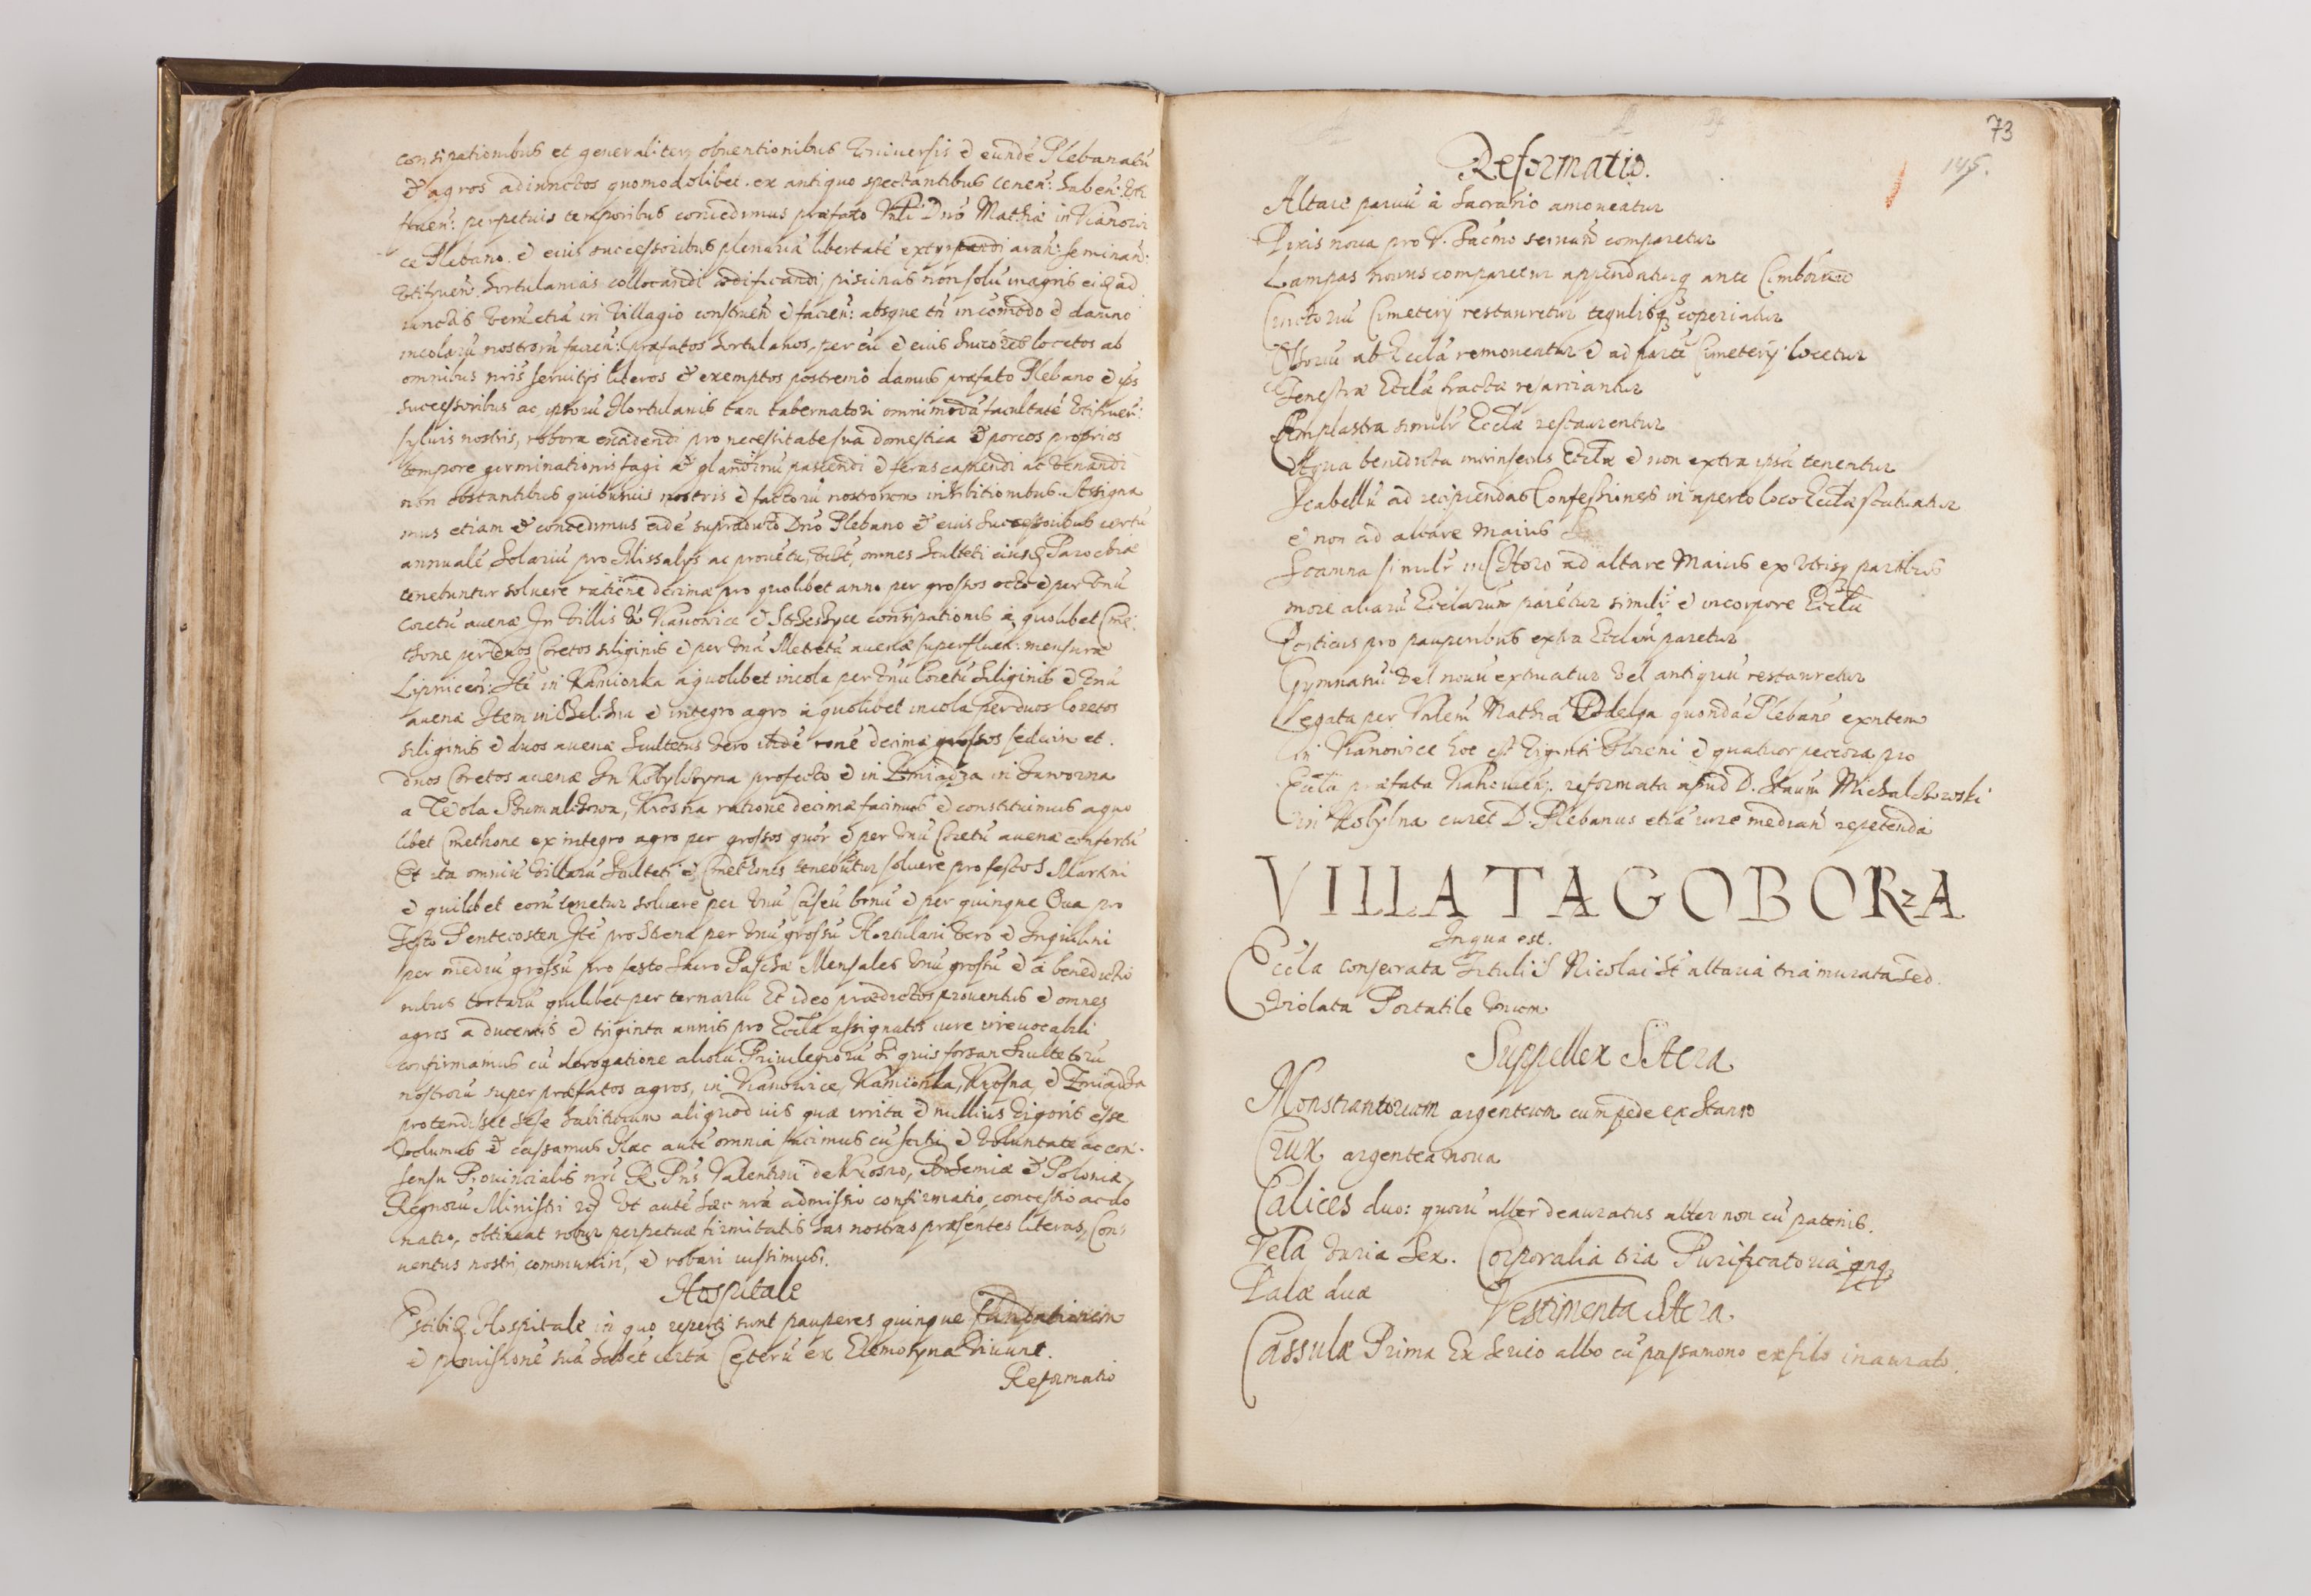 consipationibus et generaliter obuentionibus Vniuersis e eundē Plebanatū
& agros adiunctos quomodolibet ex antiquo spectantibus tenen: haben: Vti
fruen: perpetuis temporibus concedimus præfato Vnli Dno Mathiæ in Vianowi
ce Plebano e eius successoribus plenariā libertatē extirpandi aran: seminan:
Vtifruen: hortulanias collocandi ædificandi piscinas non solū in agris ei ad
iunctis verū etiā in Villagio construen e facien: absque tn incōmodo e damno
incolarū nostrorū facien: præfatos hortulanos per eū e eius Succores locatos ab
omnibus nris seruitijs liberos & exemptos postremo damus præfato Plebano e ips
successoribus ac ipsorū Hortulanis tam tabernatori omnimodā facultatē Vtifruen:
syluis nostris, robora excidendi pro necessitate sua domestica & porcos proprios
tempore germinationis fagi & glandinū pascendi e feras capiendi ac venandi
non obstantibus quibusuis nostris e factorū nostrorum inhibitionibus. Assigna
mus etiam & concedimus eidē supradicto Dno Plebano & eius Successoribus certū
annualē Solariū pro Missalijs ac prouētu, Vidlt, omnes Sculteti eiusd Parochiæ
tenebuntur soluere ratione decimæ pro quolibet anno per grossos octo e per Vnū
Coretū auenæ In Villis Vianowice e consipationis a quolibet Cme:
thone per duos Coretos siliginis e per Vnā Metretā auenæ superfluen: mensuræ
Lipnicen: Itē in Kamionka a quolibet incola per Vnū Coretū Siliginis e Vnū
auenæ Item in e integro agro a quolibet incola per duos Coretos
siliginis e duos auenæ Scultetus vero itidē rōne decimæ grossos sedecim et
duos Coretos auenæ In Kobylczyna profecto e in Zmiadza in Jaworna
a Wola Krosna ratione decimæ facimus e constituimus a quo
libet Cmethone ex integro agro per grossos quōr e per Vnū Coretū auenæ confertū
Et ita omniū Villarū Sculteti e Cmethones tenebūtur soluere pro festo S Martini
e quilibet eorū tenetur soluere per Vnū Caseū bonū e per quinque Oua pro
Festo Pentecosten Itē pro Strena per Vnū grossū Hortulani vero e Inquilini
per mediū grossū pro festo Sacro Paschæ Mensales Vnū grossū e a benedictio
nibus tortarū quilibet per ternariū Et ideo prædictos prouentus e omnes
agros a ducentis e triginta annis pro Eccla assignatos iure irreuocabili
confirmamus cū derogatione aliorū Priuilegiorū Si quis forsan Scultetorū
nostrorū super præfatos agros, in Vianowice, Kamionka, Krosna, e Zmiadza
protendisset sese habiturum aliquod ius quæ irrita e nullius Vigoris esse
Volumus & cassamus Hæc autē omnia facimus cū scitu e Voluntate ac con-
sensu Prouincialis nri R. Pris Valentini de Krosno, Bohemiæ & Poloniæ
Regnorū Ministri Vt autē hæc nra admissio confirmatio, concessio ac do
natio, obtineat robur perpetuæ firmitatis has nostras præsentes literas, Con-
uentus nostri communiri, e robari iussimus.
Hospitale
Est ibid Hospitale in quo reperti sunt pauperes quinque Fundationem
e prouisionē suā habēt certā Ceterū ex Elemosyna Viuunt.
Reformatio
73
145.
Reformatio.
Altare paruū a Sacrario amoueatur
Pixis noua pro V. Sacmo seruand comparetur
Lampas nouus comparetur appendaturq ante Cimboriū
Cinctoriū Cimeterij restauretur tegulisq cooperiatur
Ossoriū ab Eccla remoueatur e ad parte Cimeterij locetur
Fenestræ Ecclæ fractæ resarciantur
Emplastra similr Ecclæ restaurentur
Aqua benedicta intrinsecus Ecclæ e non extra ipsā teneatur
Scabellū ad recipiendas Confessiones in aperto loco Ecclæ statuatur
e non ad altare Maius
Scamna similr in Choro ad altare Maius ex Vtrisq partibus
more aliarū Ecclarum parētur similr e in corpore Ecclæ
Porticus pro pauperibus extra Ecclam paretur
Gymnasiū Vel nouū extruatur Vel antiquū restauretur
Legata per Vnlem Mathiā quondā Plebanū
in Vianowice hoc est Viginti Floreni e quatuor peccora pro
Eccla præfata reformata apud D. Michalchowski
in Kobylna curet D. Plebanus etiā iure median repetenda
VILLA TAGOBORZA
In qua est.
Eccla consecrata Tituli S Nicolai hēt altaria tria murata sed
Violata Portatile Vnum
Suppellex Sacra
Monstrantorium argenteum cum pede ex Stanno
Crux argentea noua
Calices duo: quorū alter deauratus alter non cū patenis.
Vela Varia Sex. Corporalia tria Purificatoria qnq
Palæ duæ
Vestimenta Sacra.
Cassulæ Prima Ex Serico albo cū passamono ex filo inaurato.